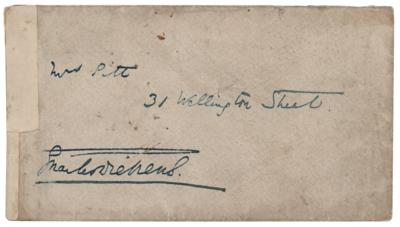 Mrs Pitt
31 Wellington Street.
Charles Dickens.